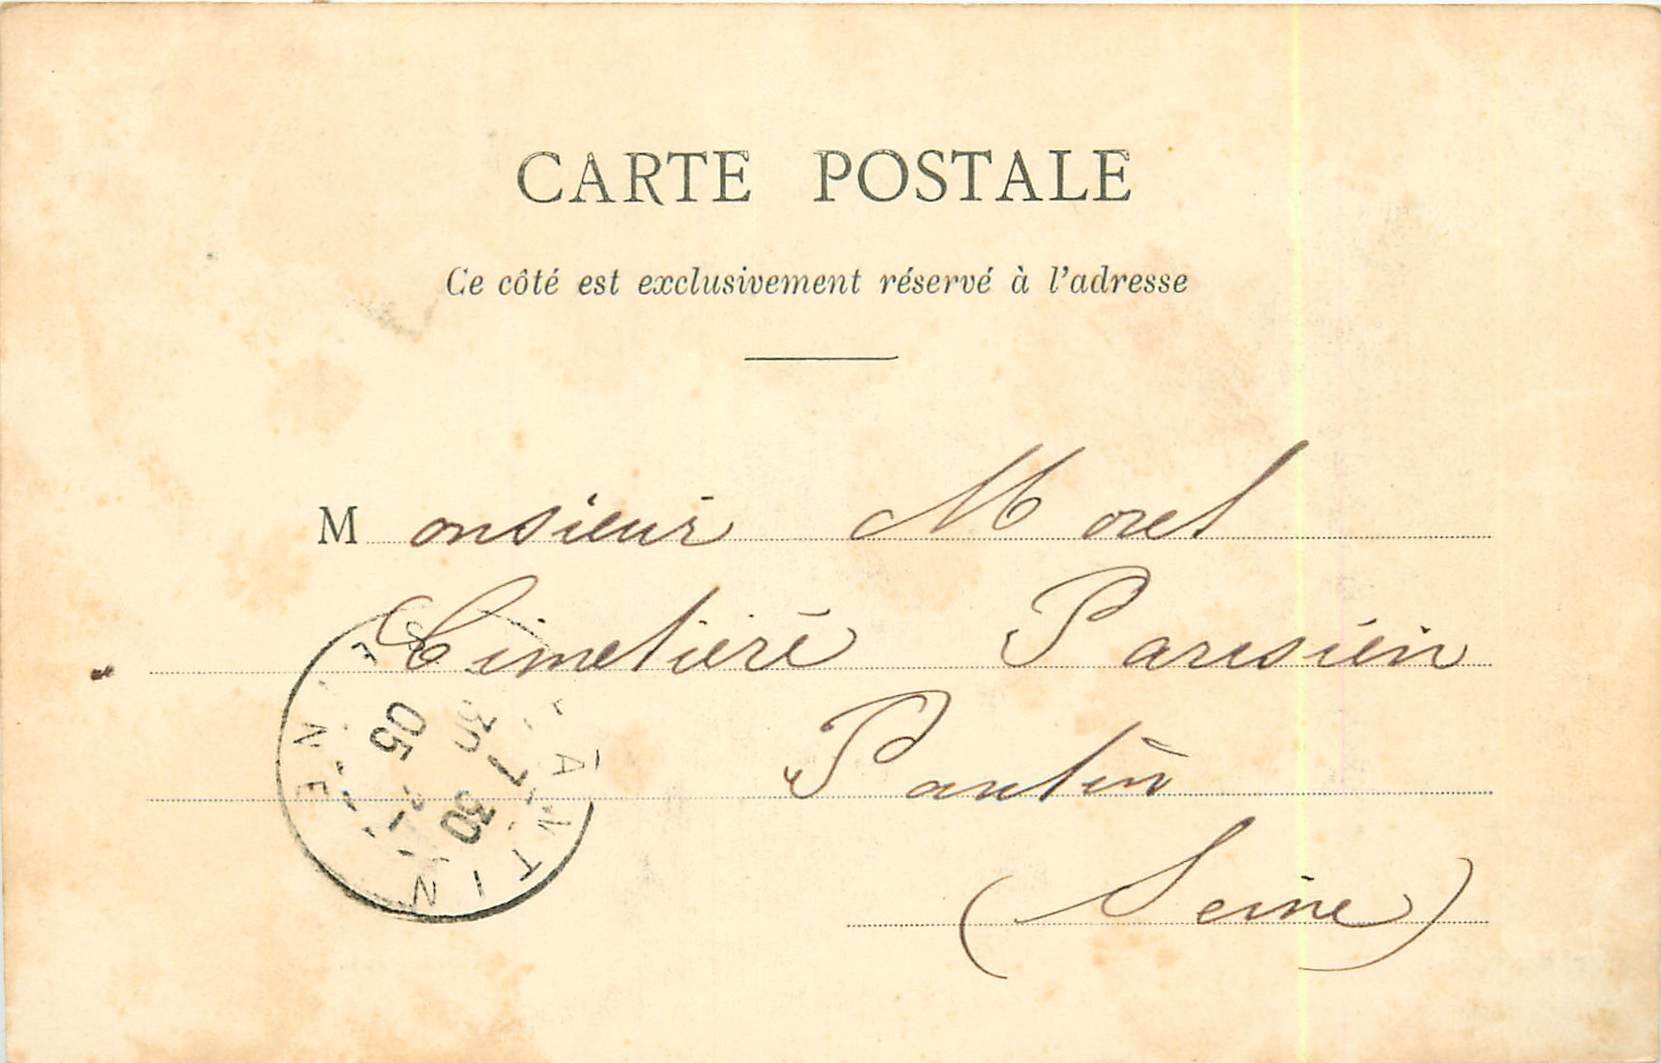 CARTE POSTALE
Ce côté est exclusivement réservé à l'adresse
Monsieur Morel
Cimetière Parisien
Pantin
(Seine)
PANTIN
SEINE
30
05